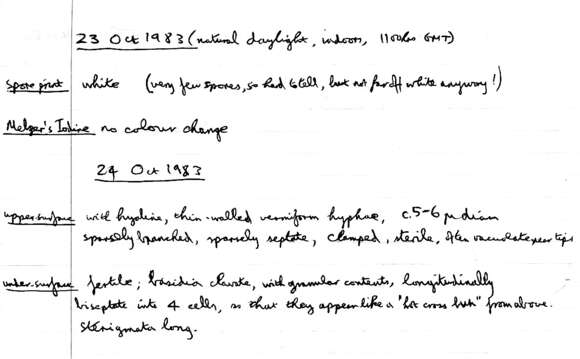 23 Oct 1983 (natural daylight, indoors, 1100hrs GMT)
Spore print white (very few spores, so hard to tell, but not far off white anyway!)
Melzer's Iodine no colour change
24 Oct 1983
upper surface with hyaline, thin-walled vermiform hyphae, c.5-6 µ diam
sparsely branched, sparsely septate, clamped, sterile, often vacuolate near tips
under-surface fertile; basidia clavate, with granular contents, longitudinally
biseptate into 4 cells, so that they appear like a "hot cross bun" from above.
Sterigmata long.